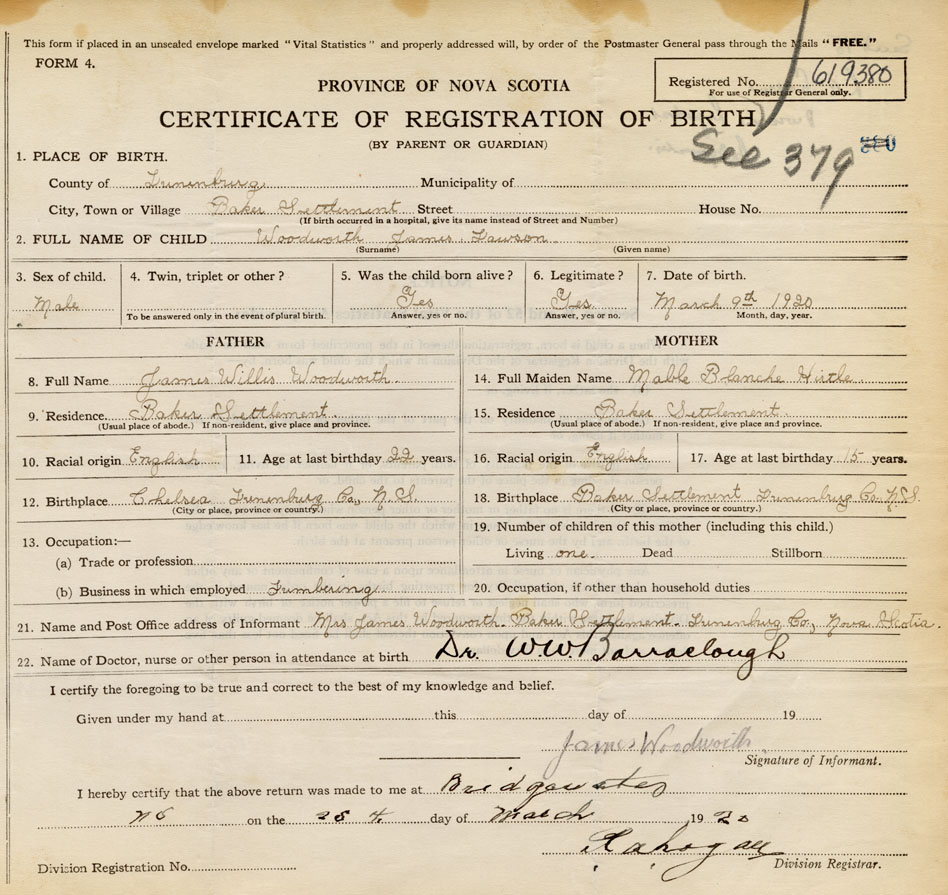 This form if placed in an unsealed envelope marked "Vital Statistics" and properly addressed will, by order of the Postmaster General pass through the Mails "FREE."
FORM 4.
Registered No. 619380
For use of Registrar General only.
PROVINCE OF NOVA SCOTIA
CERTIFICATE OF REGISTRATION OF BIRTH
(BY PARENT OR GUARDIAN)
See 379
1. PLACE OF BIRTH.
County of Lunenburg Municipality of
City, Town or Village Baker Settlement Street House No.
(If birth occurred in a hospital, give its name instead of Street and Number)
2. FULL NAME OF CHILD Woodworth James Lawson
(Surname) (Given name)
3. Sex of child. 4. Twin, triplet or other? 5. Was the child born alive? 6. Legitimate? 7. Date of birth.
Male Yes Yes March 9th 1920
To be answered only in the event of plural birth. Answer, yes or no. Answer, yes or no. Month, day, year.
FATHER MOTHER
8. Full Name James Willis Woodworth 14. Full Maiden Name Mable Blanche Hirtle
9. Residence Baker Settlement 15. Residence Baker Settlement
(Usual place of abode.) If non-resident, give place and province. (Usual place of abode.) If non-resident, give place and province.
10. Racial origin English 11. Age at last birthday 22 years. 16. Racial origin English 17. Age at last birthday 15 years.
12. Birthplace Chelsea Lunenburg Co, N.S. 18. Birthplace Baker Settlement Lunenburg Co. N.S.
(City or place, province or country.) (City or place, province or country.)
13. Occupation:— 19. Number of children of this mother (including this child.)
(a) Trade or profession Living one. Dead Stillborn
(b) Business in which employed Lumbering 20. Occupation, if other than household duties
21. Name and Post Office address of Informant Mrs James Woodworth. Baker Settlement. Lunenburg Co, Nova Scotia.
22. Name of Doctor, nurse or other person in attendance at birth Dr. W.W. Barraclough
I certify the foregoing to be true and correct to the best of my knowledge and belief.
Given under my hand at this day of 19
James Woodworth
Signature of Informant.
I hereby certify that the above return was made to me at Bridgewater
on the day of March 19 20
Division Registration No. Division Registrar.